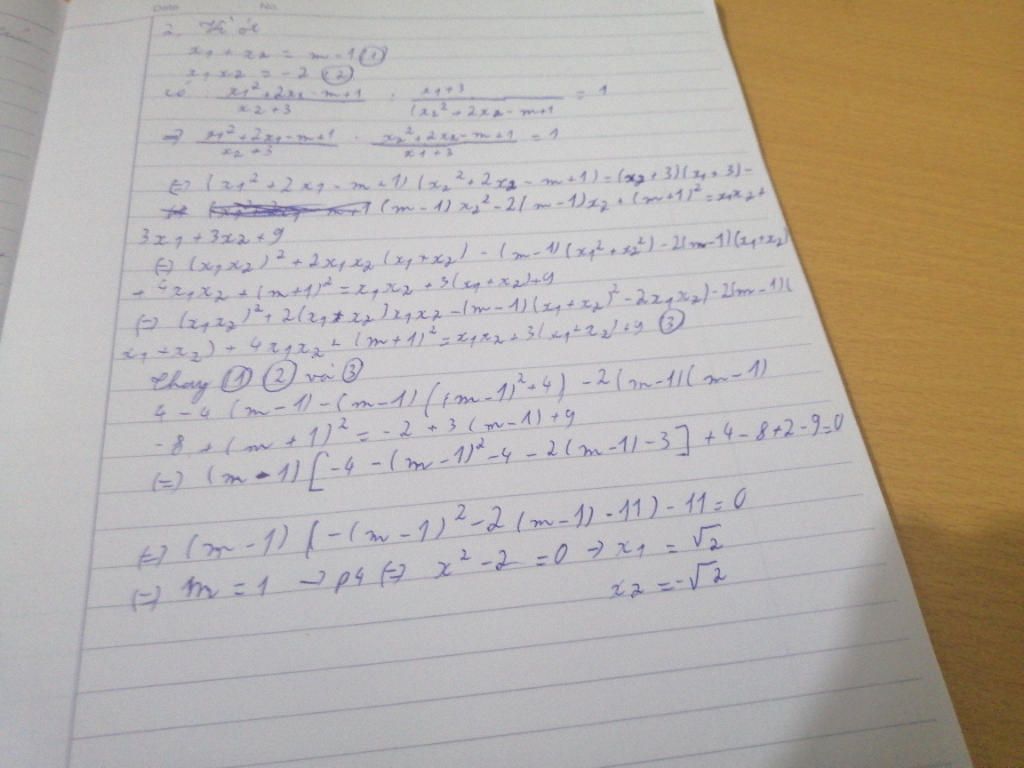 Date No.
2, Vi ét
x1 + x2 = m - 1 (1)
x1 x2 = -2 (2)
có x1² + 2x1 - m + 1 / x2 + 3 : x1 + 3 / (x2² + 2x2 - m + 1 = 1
=> x1² + 2x1 - m + 1 / x2 + 3 . x2² + 2x2 - m + 1 / x1 + 3 = 1
(=) (x1² + 2x1 - m + 1) (x2² + 2x2 - m + 1) = (x2 + 3)(x1 + 3) -
(m-1) x2² - 2(m-1)x2 + (m+1)² = x1x2 +
3x1 + 3x2 + 9
(=) (x1x2)² + 2x1x2 (x1+x2) - (m-1)(x1² + x2²) - 2(m-1)(x1+x2)
+ 4x1x2 + (m+1)² = x1x2 + 3(x1+x2) + 9
(=) (x1x2)² + 2(x1+x2)x1x2 - (m-1)(x1+x2)² - 2x1x2) - 2(m-1)(
x1 + x2) + 4x1x2 + (m+1)² = x1x2 + 3(x1+x2) + 9 (3)
Thay (1) (2) và (3)
4 - 4 (m-1) - (m-1) ((m-1)² + 4) - 2(m-1)(m-1)
-8 + (m+1)² = -2 + 3(m-1) + 9
(=) (m-1) [-4 - (m-1)² - 4 - 2(m-1) - 3] + 4 - 8 + 2 - 9 = 0
(=) (m-1) (-(m-1)² - 2(m-1) - 11) - 11 = 0
(=) m = 1 -> pt (=) x² - 2 = 0 -> x1 = √2
x2 = -√2